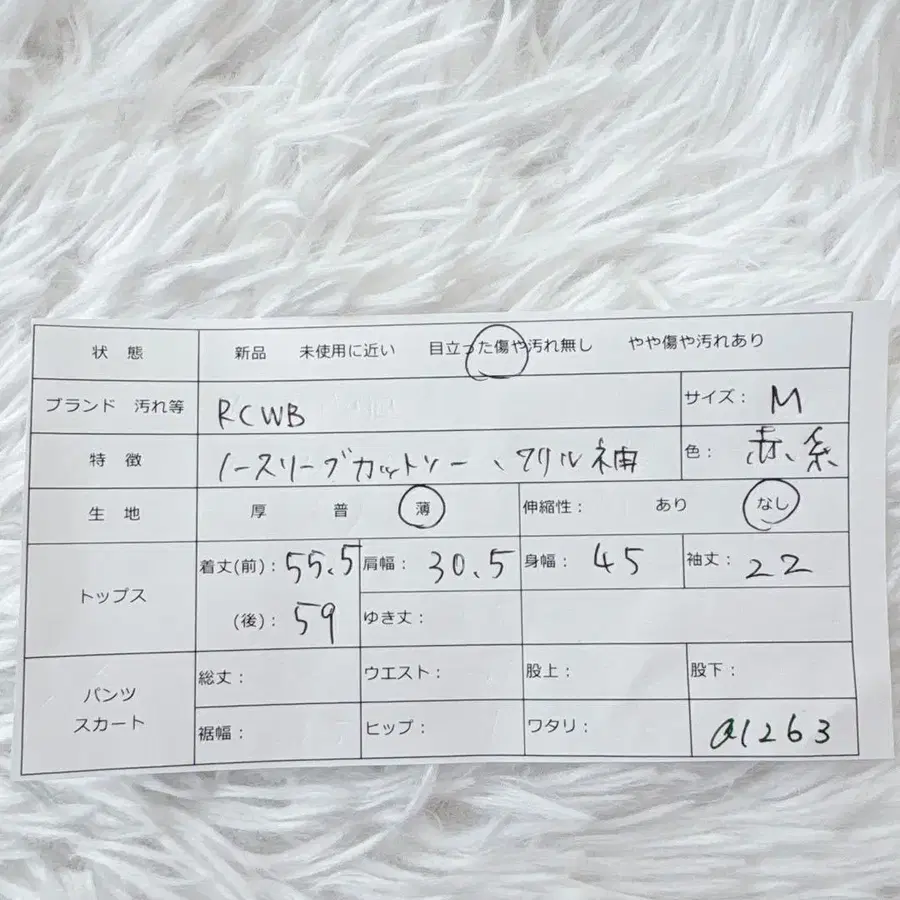 状 態 新品 未使用に近い 目立った傷や汚れ無し やや傷や汚れあり
ブランド 汚れ等 RCWB サイズ： M
特 徴 ノースリーブカットソー、フリル袖 色： 赤系
生 地 厚 普 薄 伸縮性： あり なし
トップス 着丈(前)： 55.5 肩幅： 30.5 身幅： 45 袖丈： 22
(後)： 59 ゆき丈：
パンツ スカート 総丈： ウエスト： 股上： 股下：
裾幅： ヒップ： ワタリ： a1263